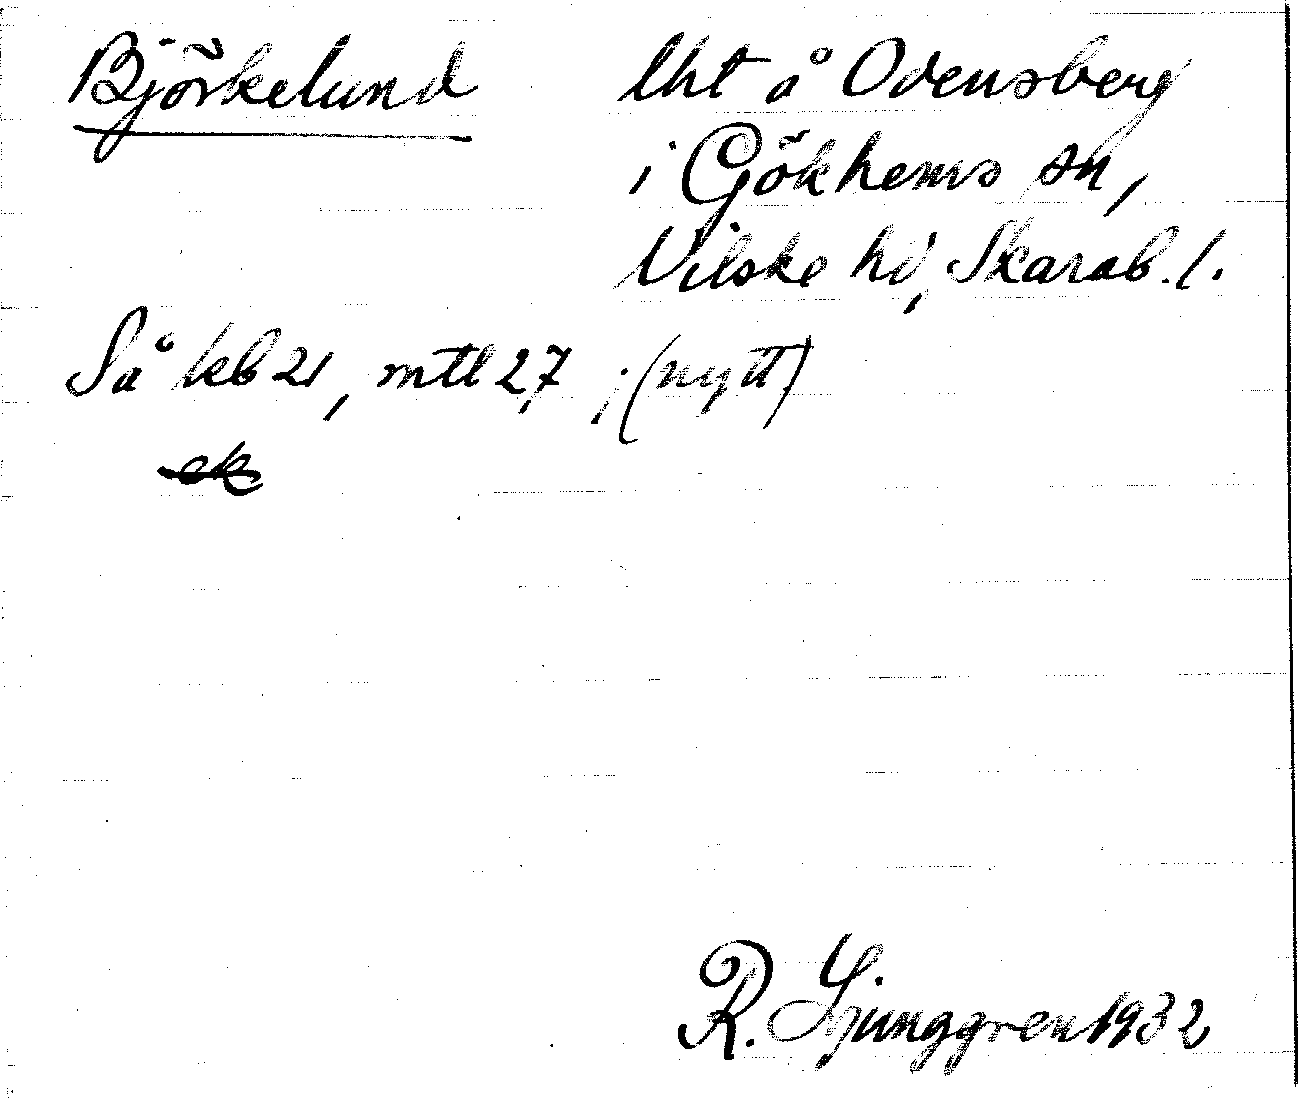 Björkelund
lht å Odensberg
i Gökhems sn,
Vilske hd, Skarab. l.
Så kb 21, mtl 27; (nytt)
ek
R. Ljunggren 1932